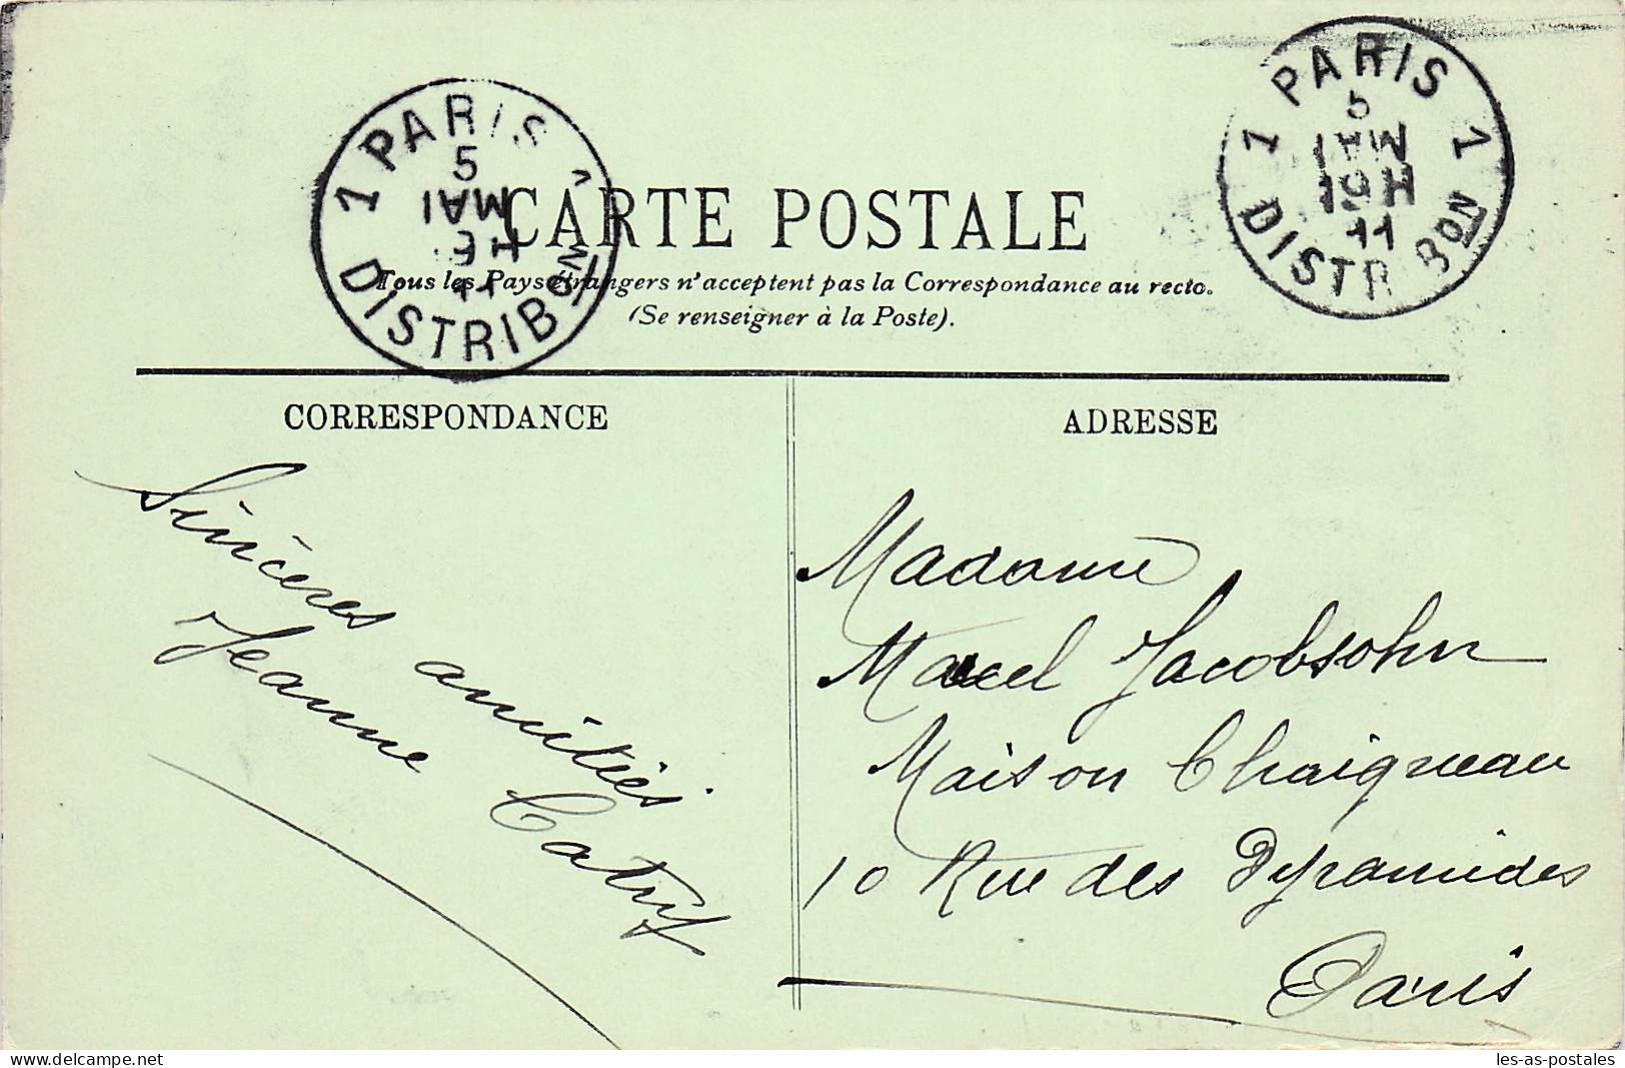 1 PARIS 1
5
MAI
DISTRIBON
1 PARIS 1
5
MAI
10 H
11
DISTR BON
CARTE POSTALE
Tous les Pays étrangers n'acceptent pas la Correspondance au recto.
(Se renseigner à la Poste).
CORRESPONDANCE
Sincères amitiés.
Jeanne
ADRESSE
Madame
Marcel Jacobsohn
Maison Chaigneau
10 Rue des Pyramides
Paris
les-as-postales